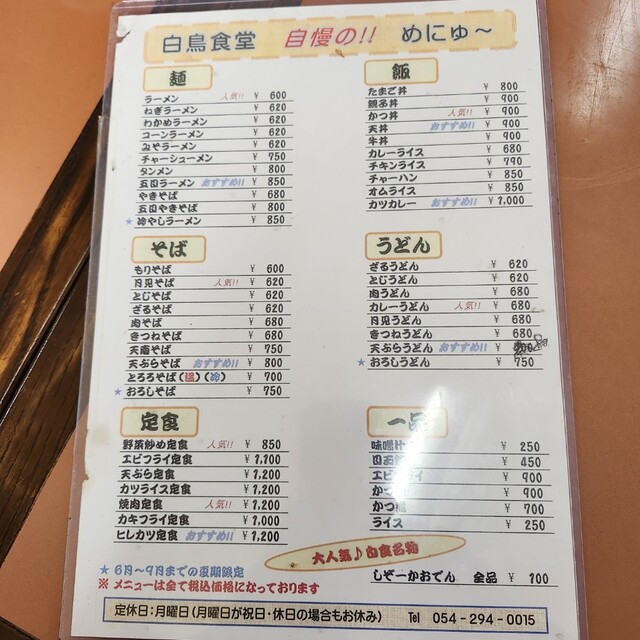 白鳥食堂 自慢の!! めにゅ～
麺
ラーメン 人気!! ¥ 600
ねぎラーメン ¥ 620
わかめラーメン ¥ 620
コーンラーメン ¥ 620
みそラーメン ¥ 620
チャーシューメン ¥ 750
タンメン ¥ 800
五目ラーメン おすすめ!! ¥ 850
やきそば ¥ 680
五目やきそば ¥ 800
★ 冷やしラーメン ¥ 850
飯
たまご丼 ¥ 800
親子丼 ¥ 900
かつ丼 人気!! ¥ 900
天丼 おすすめ!! ¥ 900
牛丼 ¥ 900
カレーライス ¥ 680
チキンライス ¥ 790
チャーハン ¥ 850
オムライス ¥ 850
カツカレー ¥ 1,000
そば
もりそば ¥ 600
月見そば 人気!! ¥ 620
とじそば ¥ 620
ざるそば ¥ 620
肉そば ¥ 680
きつねそば ¥ 680
天南そば ¥ 750
天ぷらそば おすすめ!! ¥ 800
とろろそば(温)(冷) ¥ 700
★ おろしそば ¥ 750
うどん
ざるうどん ¥ 620
とじうどん ¥ 620
肉うどん ¥ 680
カレーうどん 人気!! ¥ 680
月見うどん ¥ 680
きつねうどん ¥ 680
天ぷらうどん おすすめ!! ¥
★ おろしうどん ¥ 750
定食
野菜炒め定食 人気!! ¥ 850
エビフライ定食 ¥ 1,100
天ぷら定食 ¥ 1,200
カツライス定食 ¥ 1,200
焼肉定食 人気!! ¥ 1,200
カキフライ定食 ¥ 1,000
ヒレカツ定食 おすすめ!! ¥ 1,200
一品
味噌汁 ¥ 250
¥ 450
エビフライ ¥ 900
かつ ¥ 900
かつ ¥ 700
ライス ¥ 250
大人気♪白食名物
しぞーかおでん 全品 ¥ 100
★ 6月～9月までの夏期限定
※ メニューは全て税込価格になっております
定休日：月曜日（月曜日が祝日・休日の場合もお休み） Tel 054-294-0015